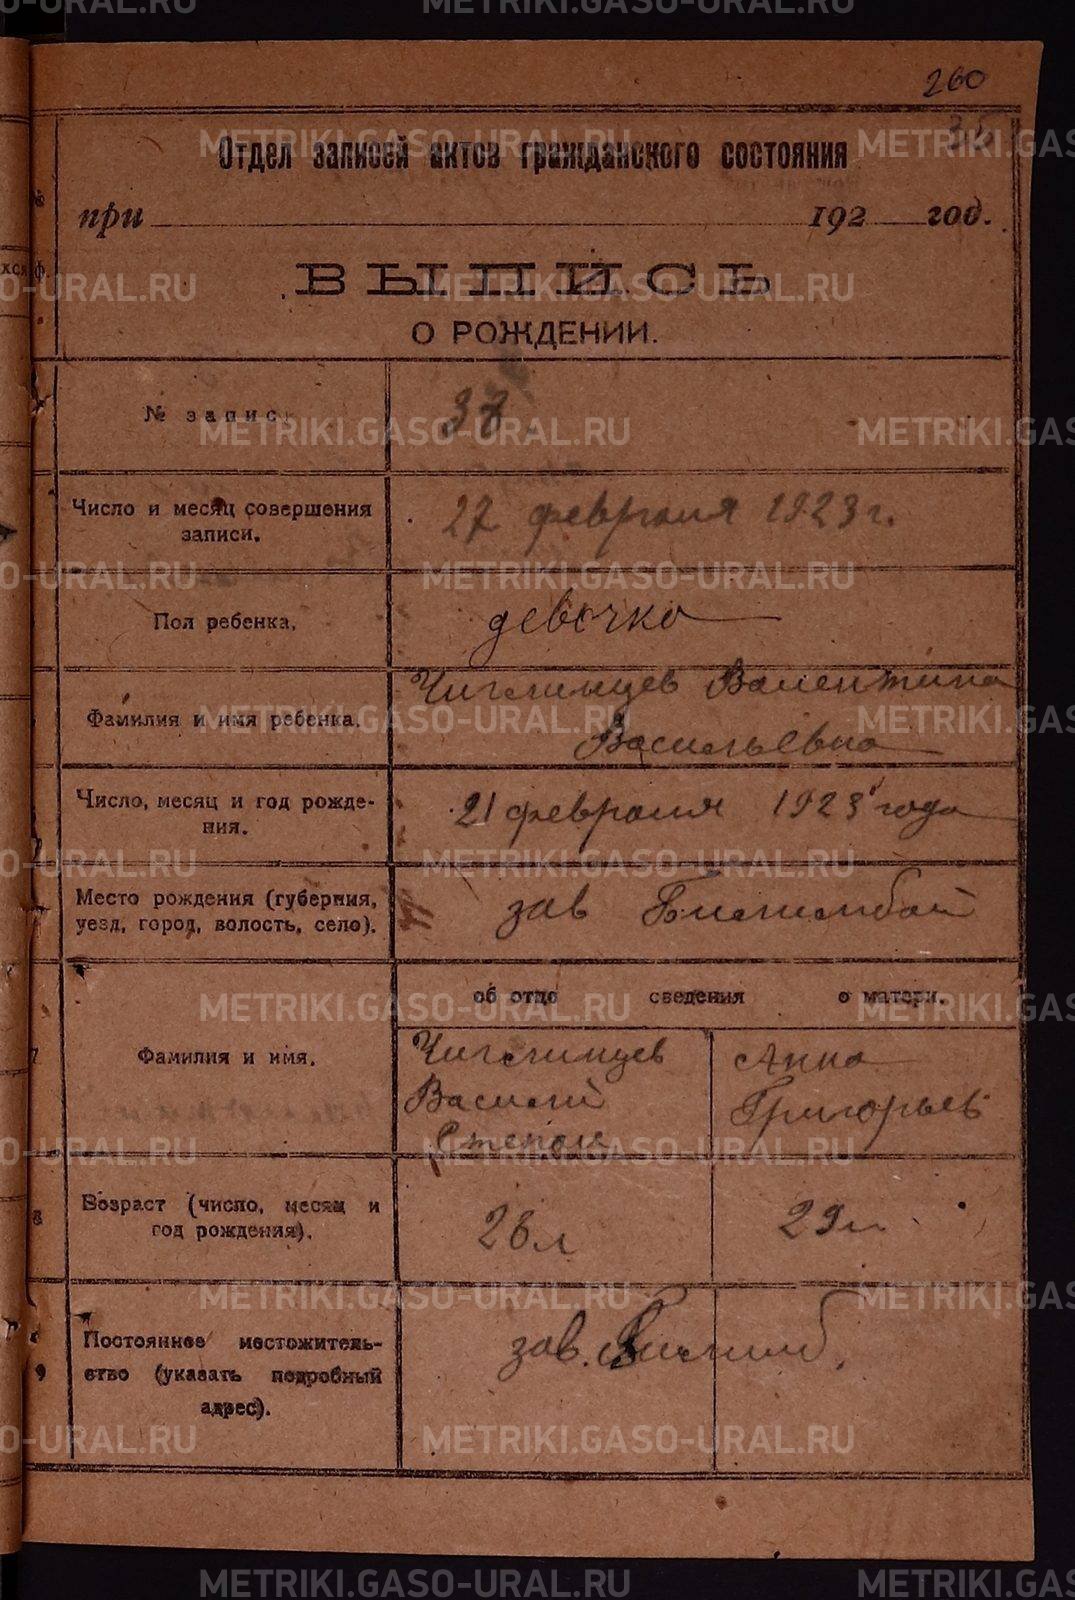 260
35
Отдел записей актов гражданского состояния
при 192 год.
ВЫПИСЬ
О РОЖДЕНИИ.
№ запис.
37.
Число и месяц совершения
записи.
27 февраля 1923 г.
Пол ребенка.
девочка
Фамилия и имя ребенка.
Чигвинцев Валентина
Васильевна
Число, месяц и год рожде-
ния.
21 февраля 1923 года
Место рождения (губерния,
уезд, город, волость, село).
зав Билимбай
об отце сведения о матери.
Фамилия и имя.
Чигвинцев
Василий
Степан
Анна
Григорьев
Возраст (число, месяц и
год рождения).
28 л
29 л
Постоянное местожитель-
ство (указать подробный
адрес).
зав. Билимб.
METRIKI.GASO-URAL.RU